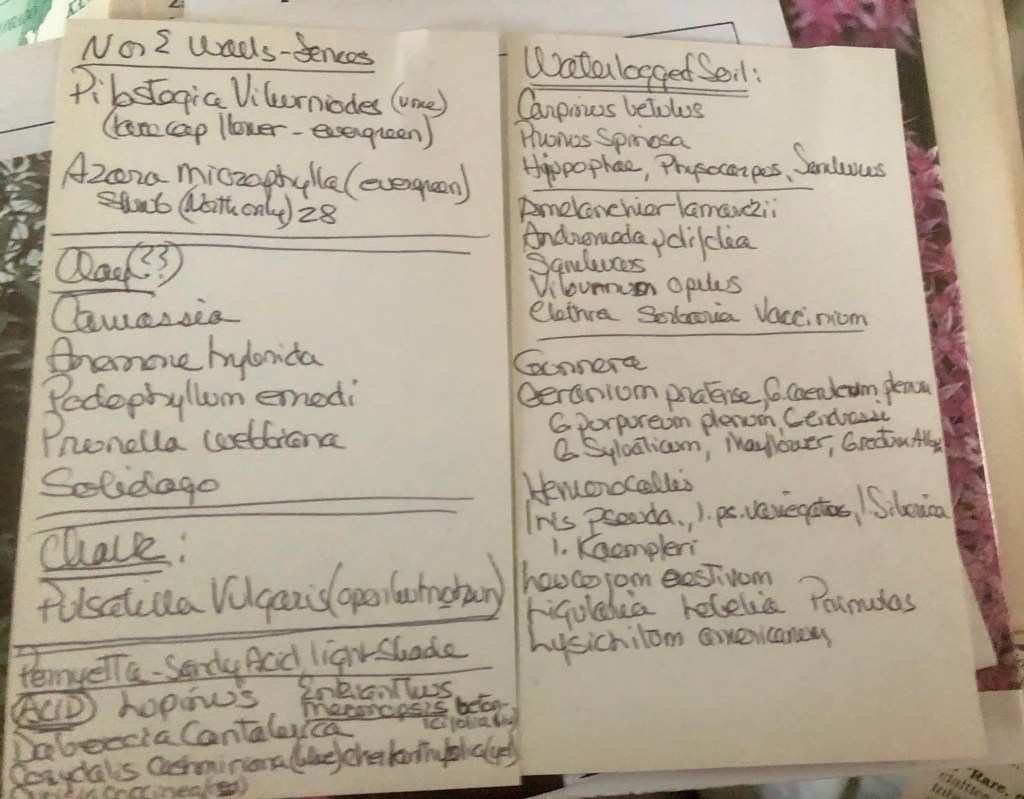 N or E Walls - Fences
Pilostogia Viburniodes (vine)
(lacecap flower - evergreen)
Azara microphylla (evergreen)
Shrub (North only) 28
Clay (??)
Camassia
Anemone hybrida
Podophyllum emodi
Prunella webbiana
Solidago
Chalk:
Pulsatilla Vulgaris (open but not sun)
Pernyetta - Sandy Acid, light Shade
ACID Lupinus Enkianthus
meconopsis beton
icifolia
Daboecia Cantabrica
Corydalis Cashmiriana (blue) cheilanthifolia (yel)
coccinea
Waterlogged Soil:
Carpinus betulus
Prunus Spinosa
Hippophae, Physocarpos, Sambucus
Amelanchier lamarckii
Andromeda polifolia
Sambucus
Viburnum opulus
Clethra Sorbaria Vaccinium
Gunnera
Geranium pratense, G. caeruleum plenum
G. purpureum plenum,
G Sylvaticum, Mayflower,
Hemerocallis
Iris pseuda., I. ps. variegatus, I. Siberica
I. Kaempferi
Leucojum aestivum
Ligularia Lobelia Primulas
Lysichitum americanum